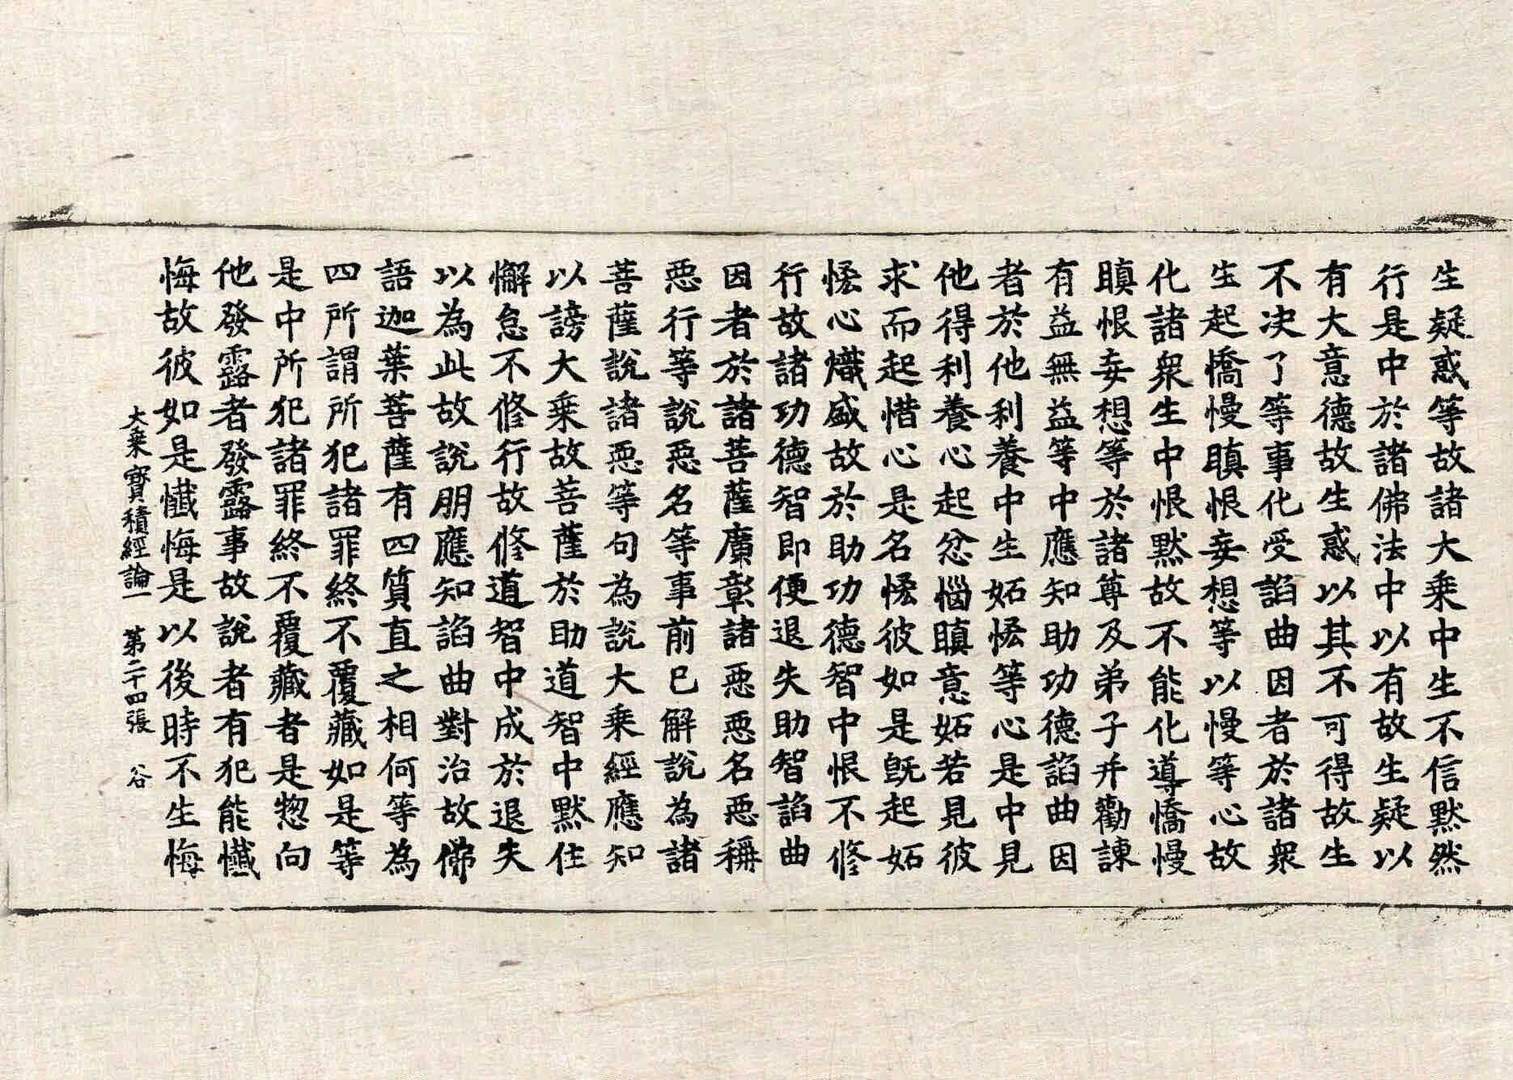 生疑惑等故諸大乘中生不信黙然
行是中於諸佛法中以有故生疑以
有大意德故生惑以其不可得故生
不决了等事化受諂曲因者於諸衆
生起憍慢瞋恨妄想等以慢等心故
化諸衆生中恨黙故不能化導憍慢
瞋恨妄想等於諸尊及弟子并勸諫
有益無益等中應知助功德諂曲因
者於他利養中生妬悋等心是中見
他得利養心起忿惱瞋意妬若見彼
求而起惜心是名悋彼如是旣起妬
悋心熾盛故於助功德智中恨不修
行故諸功德智即便退失助智諂曲
因者於諸菩薩廣彰諸惡惡名惡稱
惡行等說惡名等事前已解說為諸
菩薩說諸惡等句為說大乘經應知
以謗大乘故菩薩於助道智中黙住
懈怠不修行故修道智中成於退失
以為此故說朋應知諂曲對治故佛
語迦葉菩薩有四質直之相何等為
四所謂所犯諸罪終不覆藏如是等
是中所犯諸罪終不覆藏者是惣向
他發露者發露事故說者有犯能懺
悔故彼如是懺悔是以後時不生悔
大乘寶積經論一 第二十四張 谷